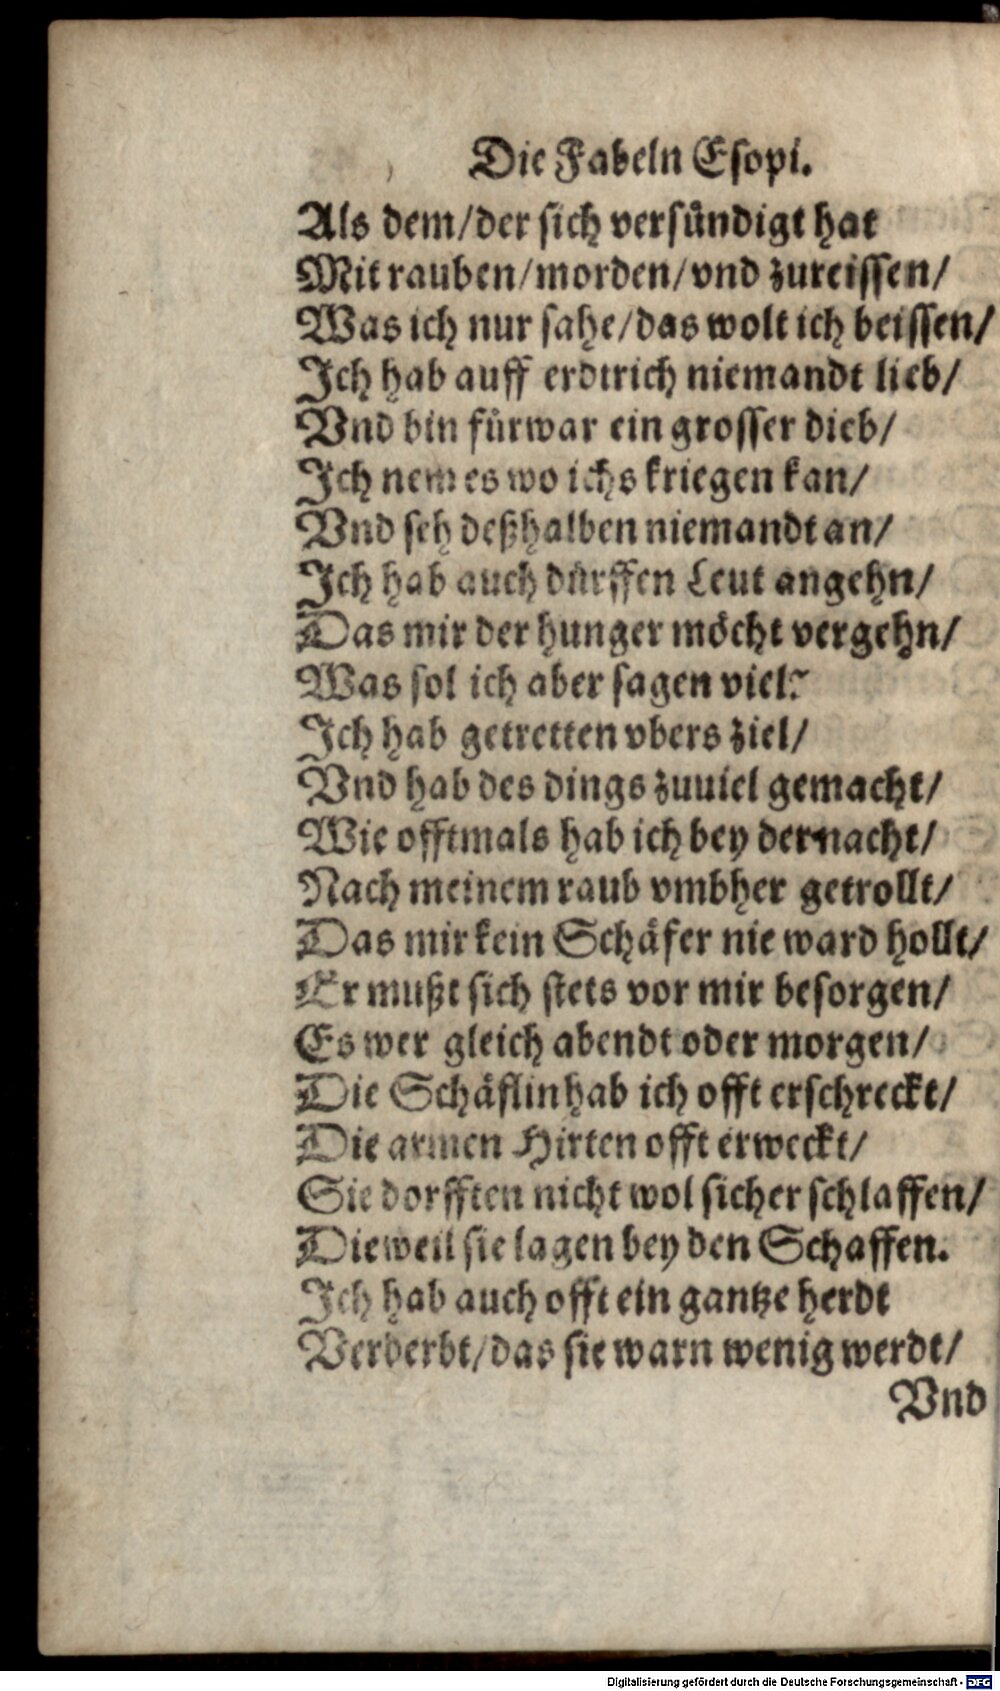 Die Fabeln Esopi.
Als dem/der sich versündigt hat
Mit rauben/morden/vnd zureissen/
Was ich nur sahe/das wolt ich beissen/
Ich hab auff erdtrich niemandt lieb/
Vnd bin fürwar ein grosser dieb/
Ich nem es wo ichs kriegen kan/
Vnd seh deßhalben niemandt an/
Ich hab auch dürffen Leut angehn/
Das mir der hunger möcht vergehn/
Was sol ich aber sagen viel?
Ich hab getretten vbers ziel/
Vnd hab des dings zuuiel gemacht/
Wie offtmals hab ich bey der nacht/
Nach meinem raub vmbher getrollt/
Das mir kein Schäfer nie ward hollt/
Er mußt sich stets vor mir besorgen/
Es wer gleich abendt oder morgen/
Die Schäflin hab ich offt erschreckt/
Die armen Hirten offt erweckt/
Sie dorfften nicht wol sicher schlaffen/
Dieweil sie lagen bey den Schaffen.
Ich hab auch offt ein gantze herdt
Verderbt/das sie warn wenig werdt/
Vnd
Digitalisierung gefördert durch die Deutsche Forschungsgemeinschaft - DFG